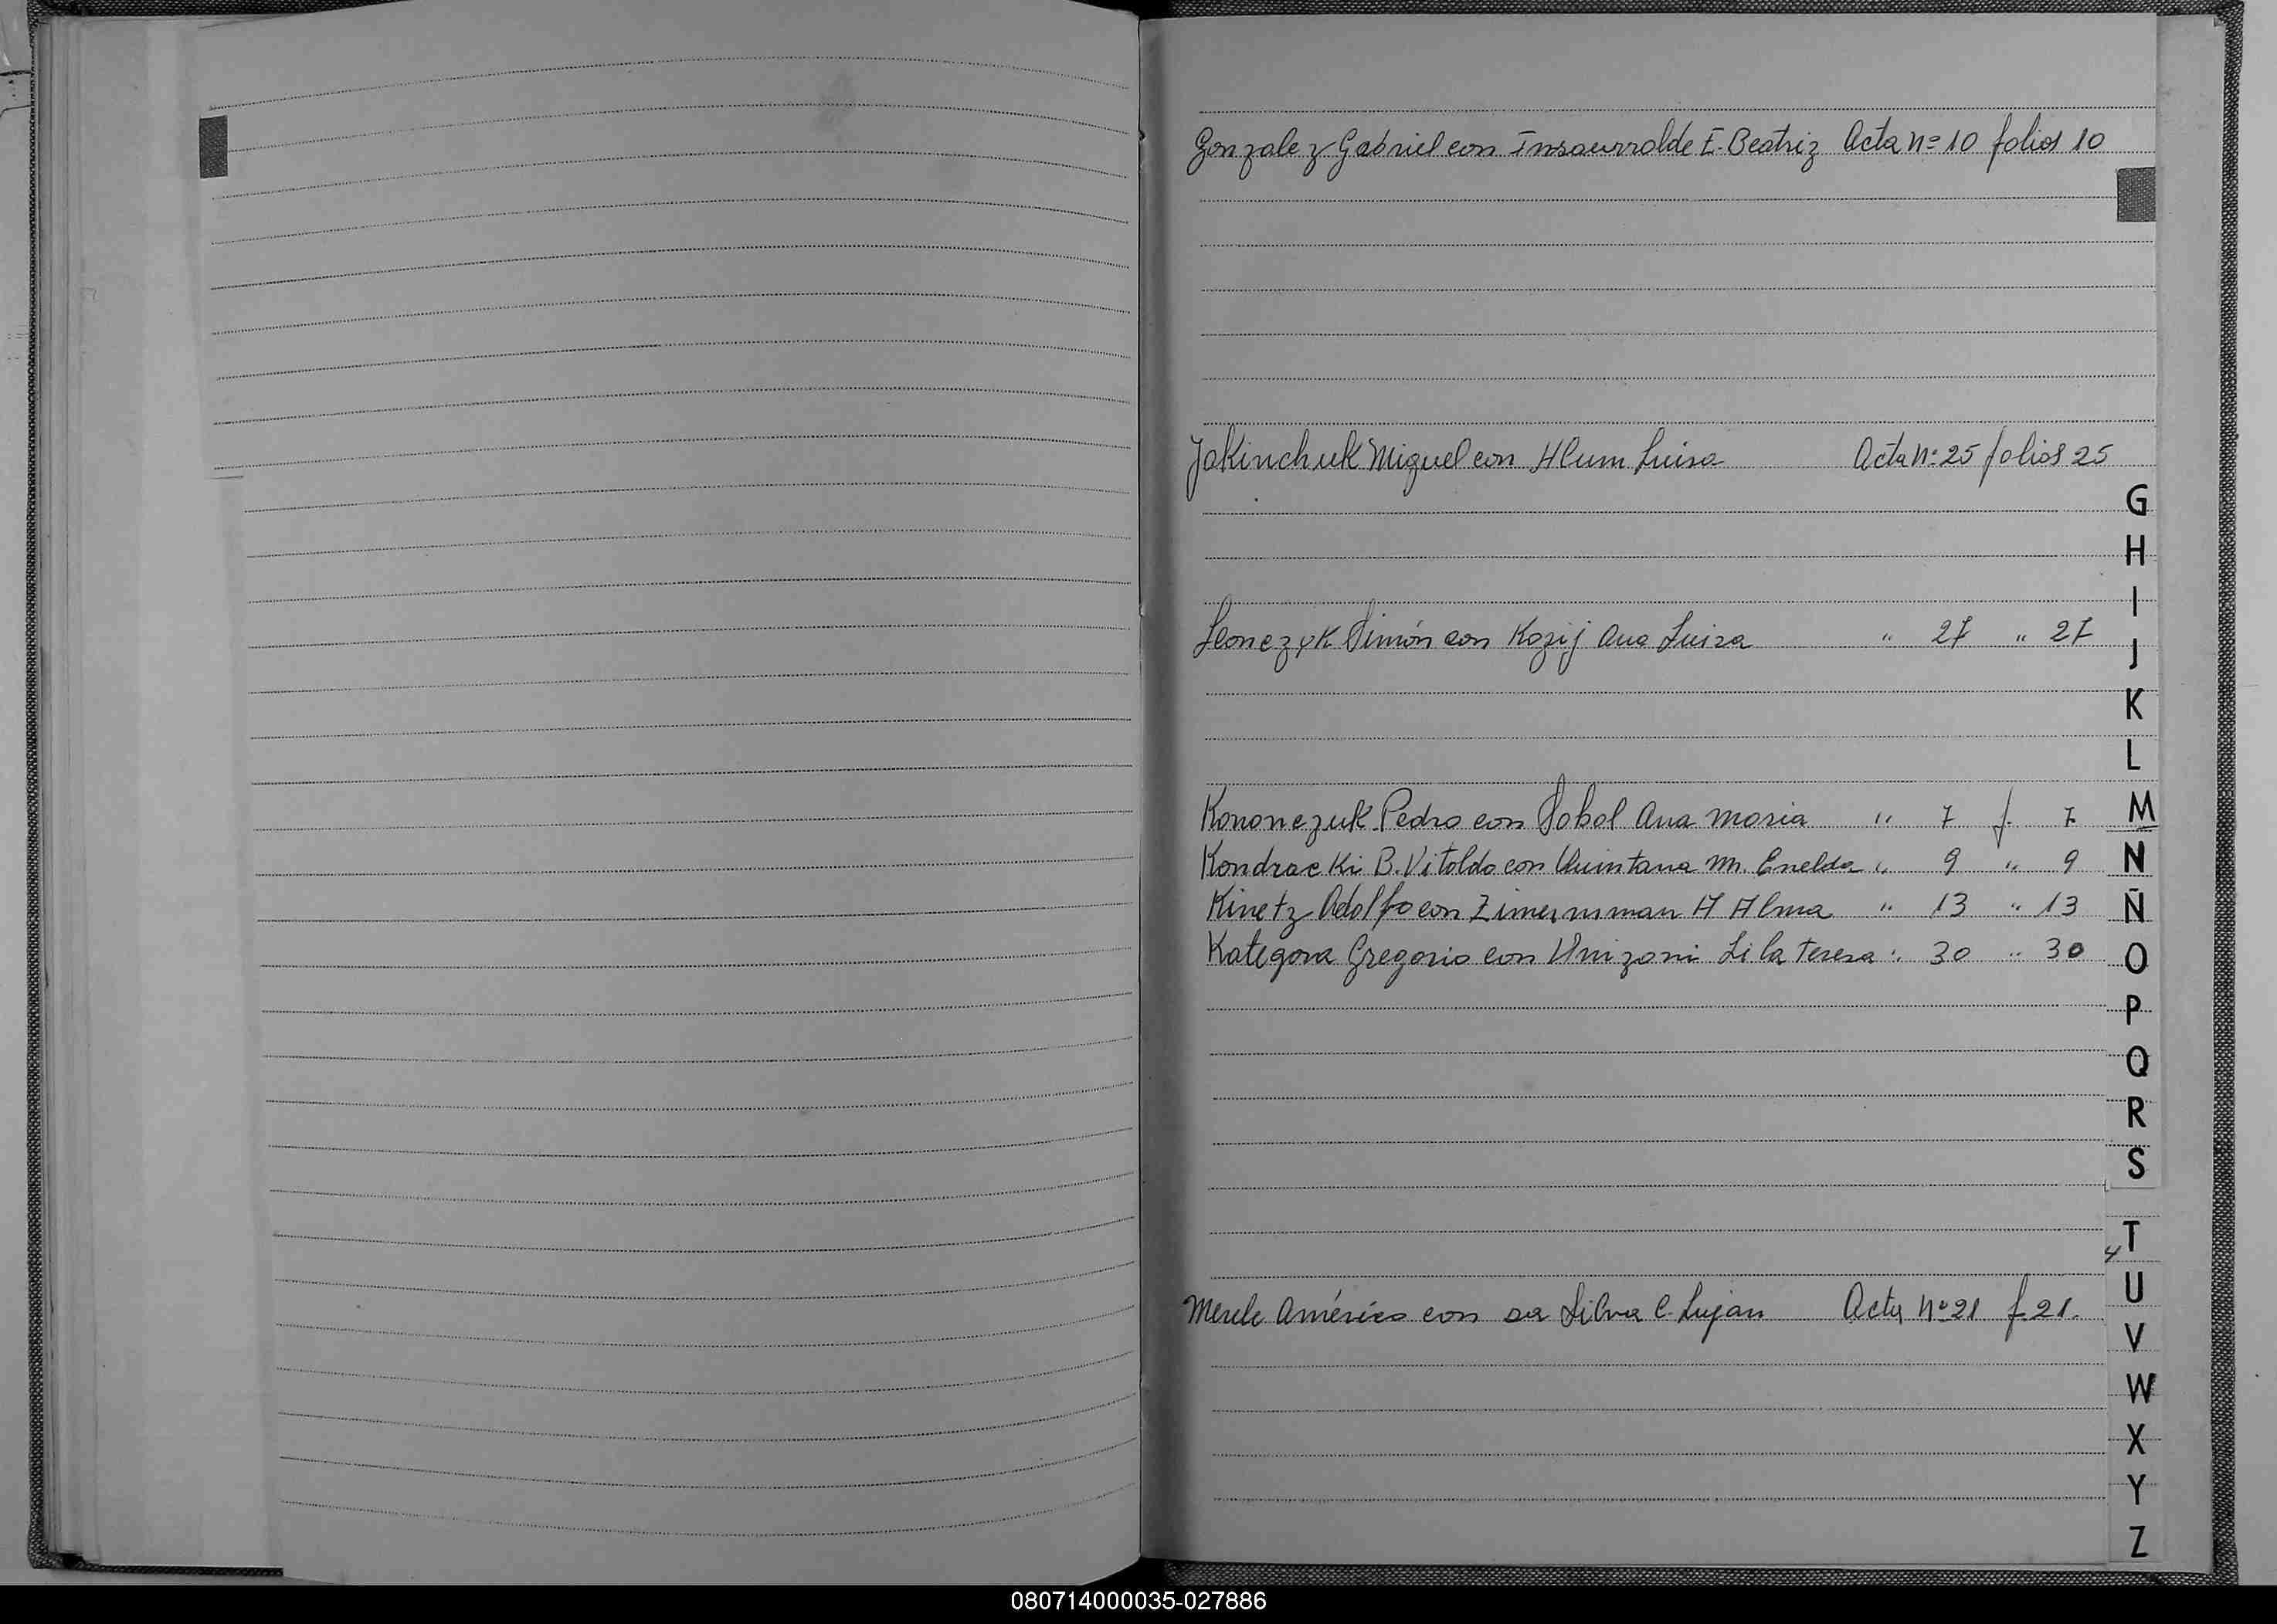 Gonzalez Gabriel con Insaurralde E. Beatriz Acta nº 10 folios 10
Jakinchuk Miguel con Hlum Luisa Acta Nº 25 folios 25
G
H
I
Leonczyk Simón con Kozij Ana Luisa " 27 " 27
J
K
L
Kononczuk Pedro con Sokol Ana Maria " 7 f. 7
M
Kondracki B. Vitoldo con Quintana M. Enelda " 9 " 9
N
Kinetz Adolfo con Zimernsman H Alma " 13 " 13
Ñ
Kategora Gregorio con Lila Teresa " 30 " 30
O
P
Q
R
S
T
U
Merele Américo con Da Silva C. Lujan Acta Nº 21 f. 21.
V
W
X
Y
Z
080714000035-027886